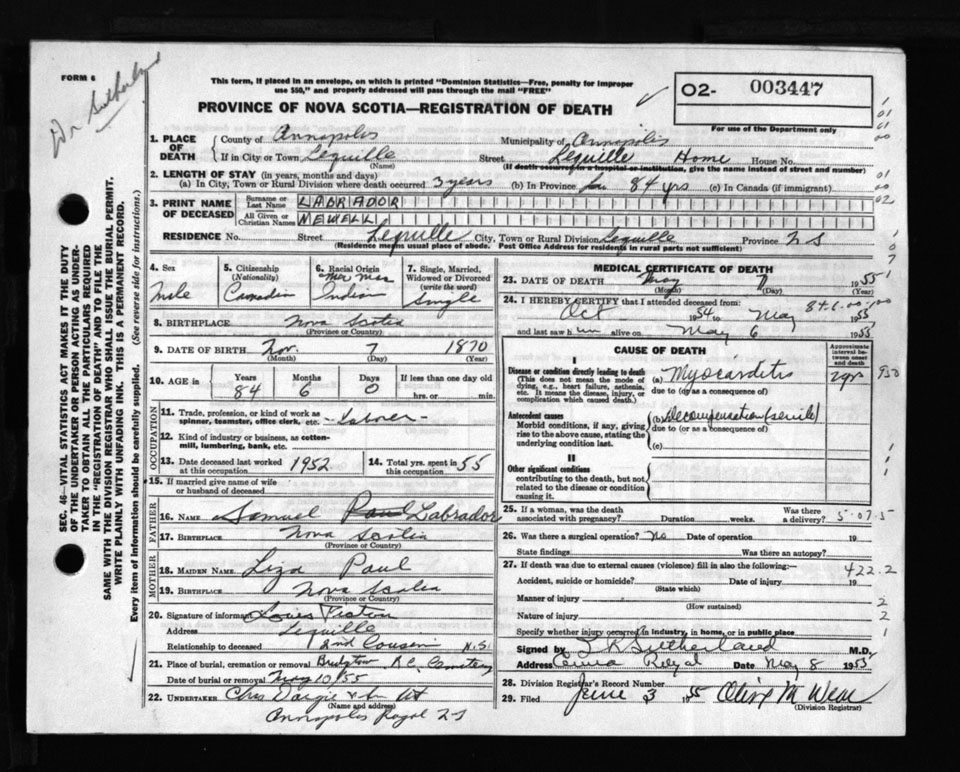 FORM 6
Dr Sutherland
This form, if placed in an envelope, on which is printed "Dominion Statistics—Free, penalty for improper
use $50," and properly addressed will pass through the mail "FREE"
PROVINCE OF NOVA SCOTIA—REGISTRATION OF DEATH
02- 003447
For use of the Department only
1. PLACE OF DEATH County of Annapolis Municipality of Annapolis
If in City or Town Lequille Street Lequille Home House No.
(Name) (If death occurred in a hospital or institution, give the name instead of street and number)
2. LENGTH OF STAY (in years, months and days)
(a) In City, Town or Rural Division where death occurred 3 years (b) In Province for 84 yrs (c) In Canada (if immigrant)
3. PRINT NAME OF DECEASED Surname or Last Name LABRADOR
All Given or Christian Names NEWELL
RESIDENCE No. Street Lequille City, Town or Rural Division Lequille Province N S
(Residence means usual place of abode. Post Office Address for residents in rural parts not sufficient)
4. Sex 5. Citizenship (Nationality) 6. Racial Origin 7. Single, Married, Widowed or Divorced (write the word)
Male Canadian Indian Single
8. BIRTHPLACE Nova Scotia
(Province or Country)
9. DATE OF BIRTH Nov. 7 1870
(Month) (Day) (Year)
10. AGE IN Years Months Days If less than one day old
84 6 0 hrs. or min.
OCCUPATION
11. Trade, profession, or kind of work as spinner, teamster, office clerk, etc. Laborer
12. Kind of industry or business, as cotton-mill, lumbering, bank, etc.
13. Date deceased last worked at this occupation 1952 14. Total yrs. spent in this occupation 55
15. If married give name of wife or husband of deceased
FATHER
16. NAME Samuel Paul Labrador
17. BIRTHPLACE Nova Scotia
(Province or Country)
MOTHER
18. MAIDEN NAME Liza Paul
19. BIRTHPLACE Nova Scotia
(Province or Country)
20. Signature of informant Louis Pictou
Address Lequille
Relationship to deceased 2nd Cousin N.S.
21. Place of burial, cremation or removal Bridgetown R.C. Cemetery
Date of burial or removal May 10/55
22. UNDERTAKER Chas Dargie &
(Name and address)
Annapolis Royal N S
MEDICAL CERTIFICATE OF DEATH
23. DATE OF DEATH May 7 1955
(Month) (Day) (Year)
24. I HEREBY CERTIFY that I attended deceased from:
Oct 1954 to May 1955
and last saw him alive on May 6 1955
CAUSE OF DEATH
Approximate interval between onset and death
I
Disease or condition directly leading to death (a) Myocarditis 2 yr 930
(This does not mean the mode of dying, e.g., heart failure, asthenia, etc. It means the disease, injury, or complication which caused death.) due to (or as a consequence of)
Antecedent causes (b) decompensation (senile)
Morbid conditions, if any, giving rise to the above cause, stating the underlying condition last. due to (or as a consequence of)
(c)
II
Other significant conditions contributing to the death, but not related to the disease or condition causing it.
25. If a woman, was the death associated with pregnancy? Duration weeks. Was there a delivery? 5-07-5
26. Was there a surgical operation? No Date of operation 19
State findings Was there an autopsy?
27. If death was due to external causes (violence) fill in also the following:— 422.2
Accident, suicide or homicide? Date of injury 19
(State which)
Manner of injury 2
(How sustained)
Nature of injury 2
Specify whether injury occurred in industry, in home, or in public place 1
Signed by Sutherland M.D.
Address Anna Royal Date May 8 1955
28. Division Registrar's Record Number
29. Filed June 3 1955 Olive M Weir
(Division Registrar)
SEC. 46—VITAL STATISTICS ACT MAKES IT THE DUTY
OF THE UNDERTAKER OR PERSON ACTING AS UNDER-
TAKER TO OBTAIN ALL THE PARTICULARS REQUIRED
IN THE "REGISTRATION OF DEATH" AND TO FILE THE
SAME WITH THE DIVISION REGISTRAR WHO SHALL ISSUE THE BURIAL PERMIT.
WRITE PLAINLY WITH UNFADING INK. THIS IS A PERMANENT RECORD.
Every item of information should be carefully supplied. (See reverse side for instructions.)